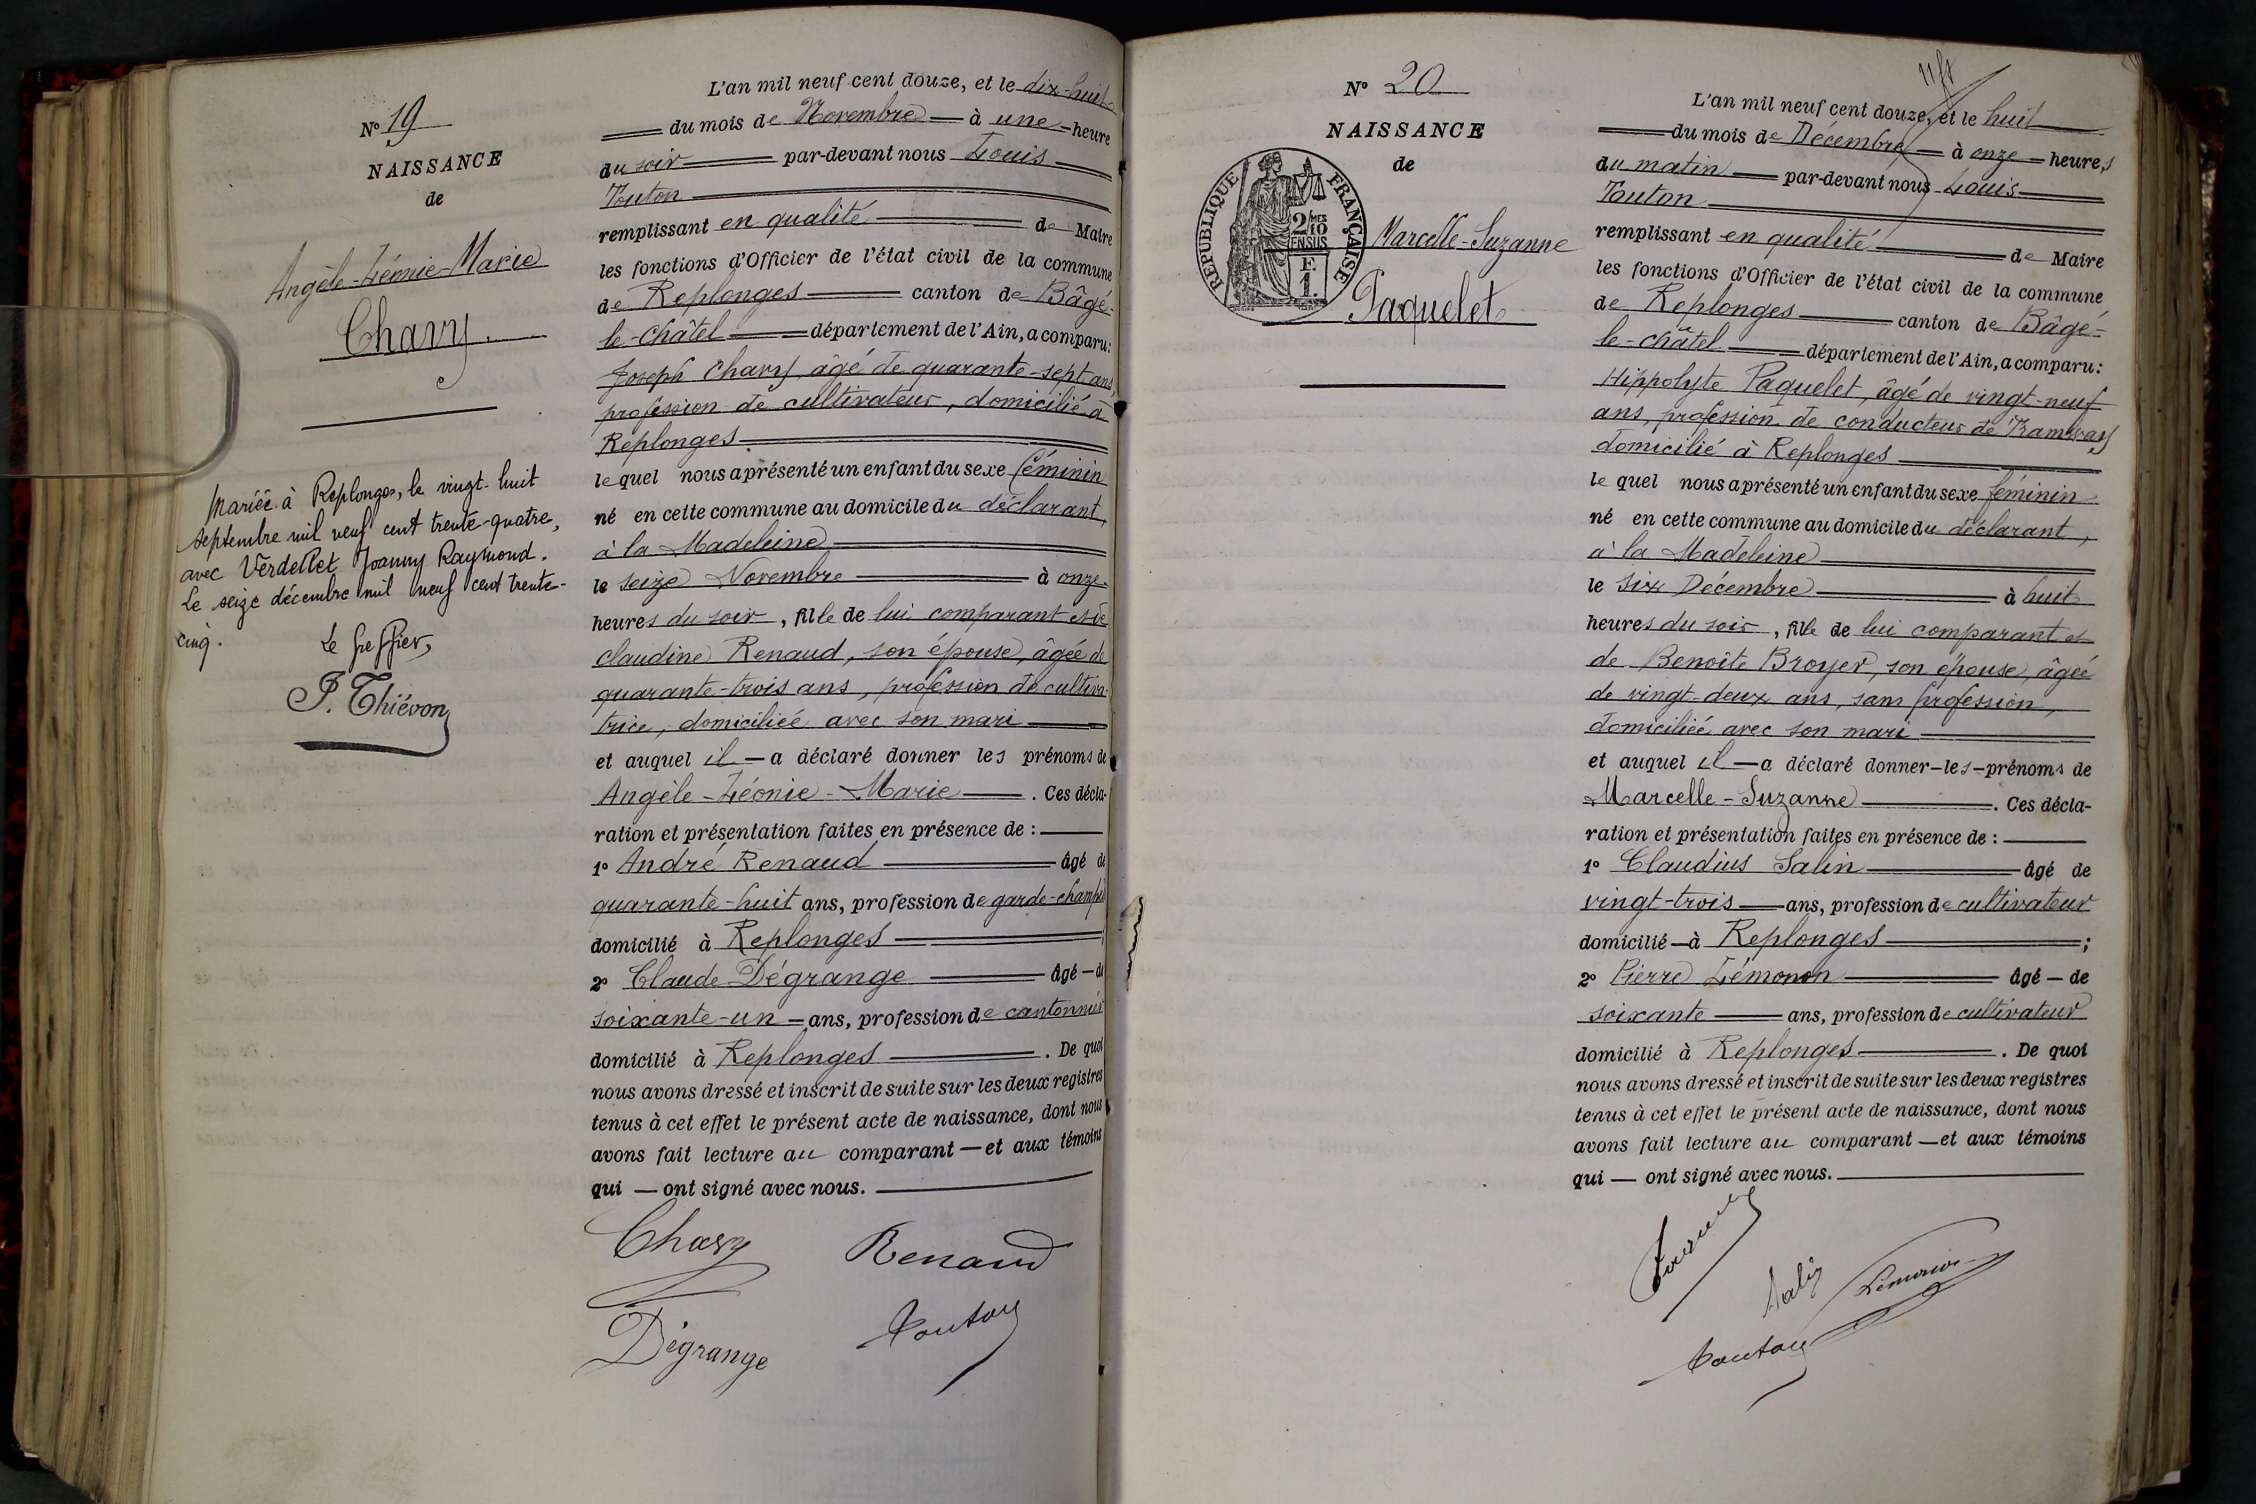 N° 19
NAISSANCE
de
Angèle-Léonie-Marie
Chavy.
Mariée à Replonges, le vingt-huit
septembre mil neuf cent trente-quatre,
avec Verdellet Joanny Raymond.
Le seize décembre mil neuf cent trente-
cinq.
Le greffier,
P. Thiévon
L'an mil neuf cent douze, et le dix-huit
du mois de Novembre à une heure
du soir par-devant nous Louis
Touton
remplissant en qualité de Maire
les fonctions d'Officier de l'état civil de la commune
de Replonges canton de Bâgé-
le-Châtel département de l'Ain, a comparu:
Joseph Chavy, âgé de quarante-sept ans,
profession de cultivateur, domicilié à
Replonges
lequel nous a présenté un enfant du sexe féminin
né en cette commune au domicile du déclarant,
à la Madeleine
le seize Novembre à onze
heures du soir, fille de lui comparant et de
Claudine Renaud, son épouse, âgée de
quarante-trois ans, profession de cultiva-
trice, domiciliée avec son mari
et auquel il a déclaré donner les prénoms de
Angèle-Léonie-Marie. Ces décla-
ration et présentation faites en présence de :
1° André Renaud âgé de
quarante-huit ans, profession de garde-champêtre
domicilié à Replonges ;
2° Claude Dégrange âgé de
soixante-un ans, profession de cantonnier
domicilié à Replonges. De quoi
nous avons dressé et inscrit de suite sur les deux registres
tenus à cet effet le présent acte de naissance, dont nous
avons fait lecture au comparant et aux témoins
qui ont signé avec nous.
Chavy Renaud
Dégrange Touton
N° 20
NAISSANCE
de
RÉPUBLIQUE FRANÇAISE
2/10 MES
EN SUS
F.
1.
Marcelle-Suzanne
Paquelet
L'an mil neuf cent douze, et le huit
du mois de Décembre à onze heures
du matin par-devant nous Louis
Touton
remplissant en qualité de Maire
les fonctions d'Officier de l'état civil de la commune
de Replonges canton de Bâgé-
le-Châtel département de l'Ain, a comparu:
Hippolyte Paquelet, âgé de vingt-neuf
ans, profession de conducteur de Tramway
domicilié à Replonges
lequel nous a présenté un enfant du sexe féminin
né en cette commune au domicile du déclarant,
à la Madeleine
le six Décembre à huit
heures du soir, fille de lui comparant et
de Benoîte Broyer, son épouse, âgée
de vingt-deux ans, sans profession,
domiciliée avec son mari
et auquel il a déclaré donner les prénoms de
Marcelle-Suzanne. Ces décla-
ration et présentation faites en présence de :
1° Claudius Salin âgé de
vingt-trois ans, profession de cultivateur
domicilié à Replonges ;
2° Pierre Lémonon âgé de
soixante ans, profession de cultivateur
domicilié à Replonges. De quoi
nous avons dressé et inscrit de suite sur les deux registres
tenus à cet effet le présent acte de naissance, dont nous
avons fait lecture au comparant et aux témoins
qui ont signé avec nous.
Salin Lémonon
Touton